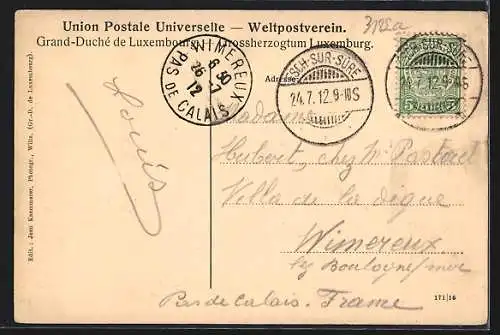 3125a
Union Postale Universelle — Weltpostverein.
Grand-Duché de Luxembourg — Grossherzogtum Luxemburg.
Adresse
WIMEREUX
6 30
26 - 7
12
PAS DE CALAIS
ESCH-SUR-SÛRE
24.7.12.9-10S
ESCH-SUR-SÛRE
5
5
Louis
Madame
Hubert, chez Mr Pastoret
Villa de la digue
Wimereux
by Boulogne s/mer
Pas de Calais. France
171|16
Edit.: Jean Kaemmerer, Photogr., Wiltz, (Gr.-D. de Luxembourg).